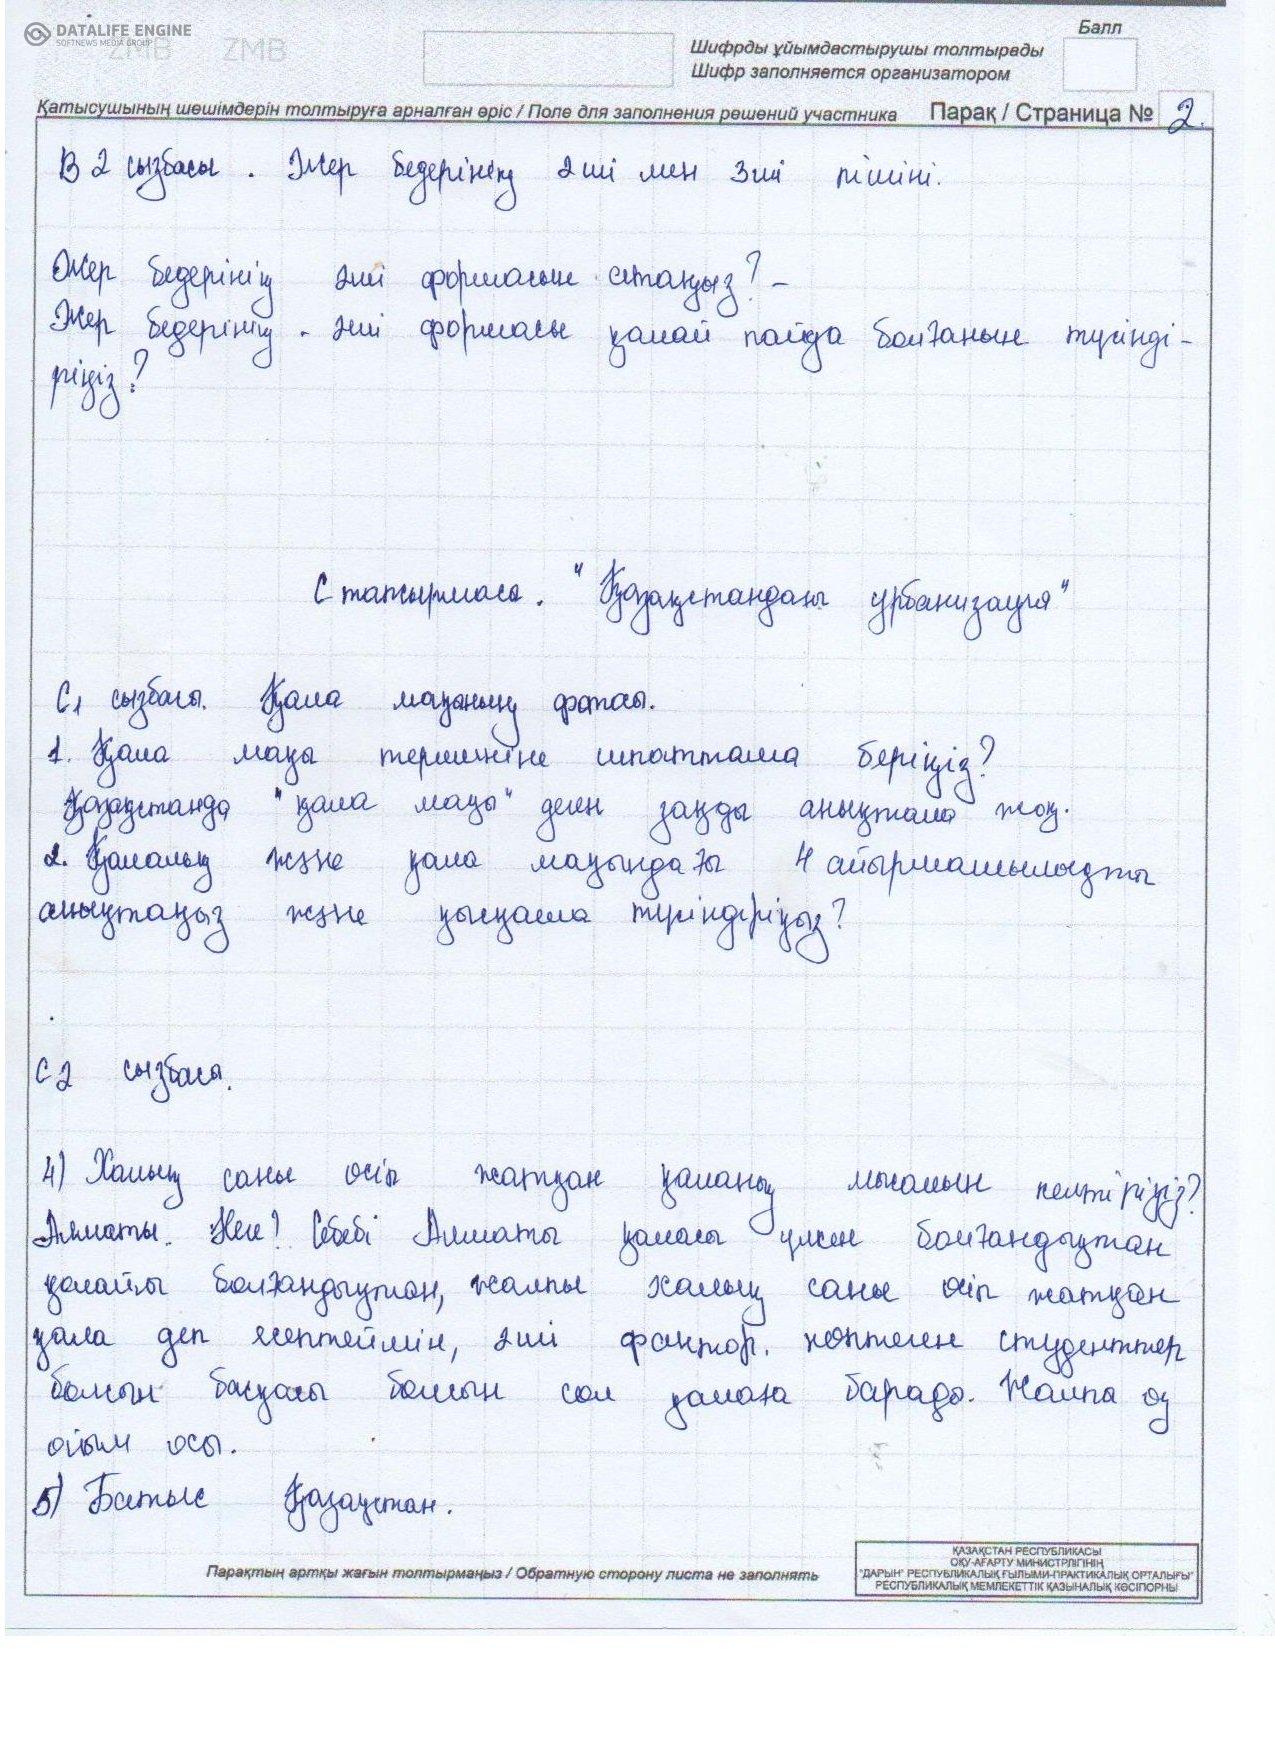 DATALIFE ENGINE
SOFTNEWS MEDIA GROUP
ZMB ZMB
Балл
Шифрды ұйымдастырушы толтырады
Шифр заполняется организатором
Қатысушының шешімдерін толтыруға арналған өріс / Поле для заполнения решений участника Парақ / Страница № 2.
В 2 сызбасы. Жер бедерінің 2ші мен 3ші пішіні.
Жер бедерінің 2ші формасын атаңыз? -
Жер бедерінің. 2ші формасы қалай пайда болғанын түсінді-
ріңіз?
С тапсырмасы. "Қазақстандағы урбанизация"
С1 сызбасы. Қала маңының фотосы.
1. Қала маңы терминіне сипаттама беріңіз?
Қазақстанда "қала маңы" деген заңды анықтама жоқ.
2. Қалалық және қала маңындағы 4 айырмашылықты
анықтаңыз және қысқаша түсіндіріңіз?
С2 сызбасы.
4) Халық саны өсіп жатқан қаланың мысалын келтіріңіз?
Алматы. Неге? Себебі Алматы қаласы үлкен болғандықтан
қолайлы болғандықтан, жалпы халық саны өсіп жатқан
қала деп есептеймін, 2ші фактор. көптеген студенттер
болсын басқасы болсын сол қалаға барады. Жалпы өз
ойым осы.
5) Батыс Қазақстан.
Парақтың артқы жағын толтырмаңыз / Обратную сторону листа не заполнять
ҚАЗАҚСТАН РЕСПУБЛИКАСЫ
ОҚУ-АҒАРТУ МИНИСТРЛІГІНІҢ
"ДАРЫН" РЕСПУБЛИКАЛЫҚ ҒЫЛЫМИ-ПРАКТИКАЛЫҚ ОРТАЛЫҒЫ"
РЕСПУБЛИКАЛЫҚ МЕМЛЕКЕТТІК ҚАЗЫНАЛЫҚ КӘСІПОРНЫ